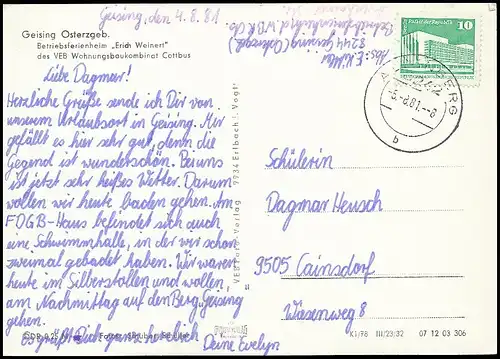 Geising, den 4.8.81
Geising Osterzgeb.
Betriebsferienheim „Erich Weinert"
des VEB Wohnungsbaukombinat Cottbus
Liebe Dagmar!
Herzliche Grüße sende ich Dir von
unserem Urlaubsort in Geising. Mir
gefällt es hier sehr gut, denn die
Gegend ist wunderschön. Bei uns
ist jetzt sehr heißes Wetter. Darum
wollen wir heute baden gehen. Am
FDGB-Haus befindet sich auch
eine Schwimmhalle, in der wir schon
zweimal gebadet haben. Wir waren
heute im Silberstollen und wollen
am Nachmittag auf den Berg Geising
gehen.
Es grüßt Dich ganz herzlich
Deine Evelyn
VEB Foto-Verlag 9934 Erlbach i. Vogtl.
Abs.:
8244 Geising (Osterzgeb.)
10
BERG
-5.-8.81--8
b
Schülerin
Dagmar Heusch
9505 Cainsdorf
Wiesenweg 8
K1/78 III/23/32 07 12 03 306